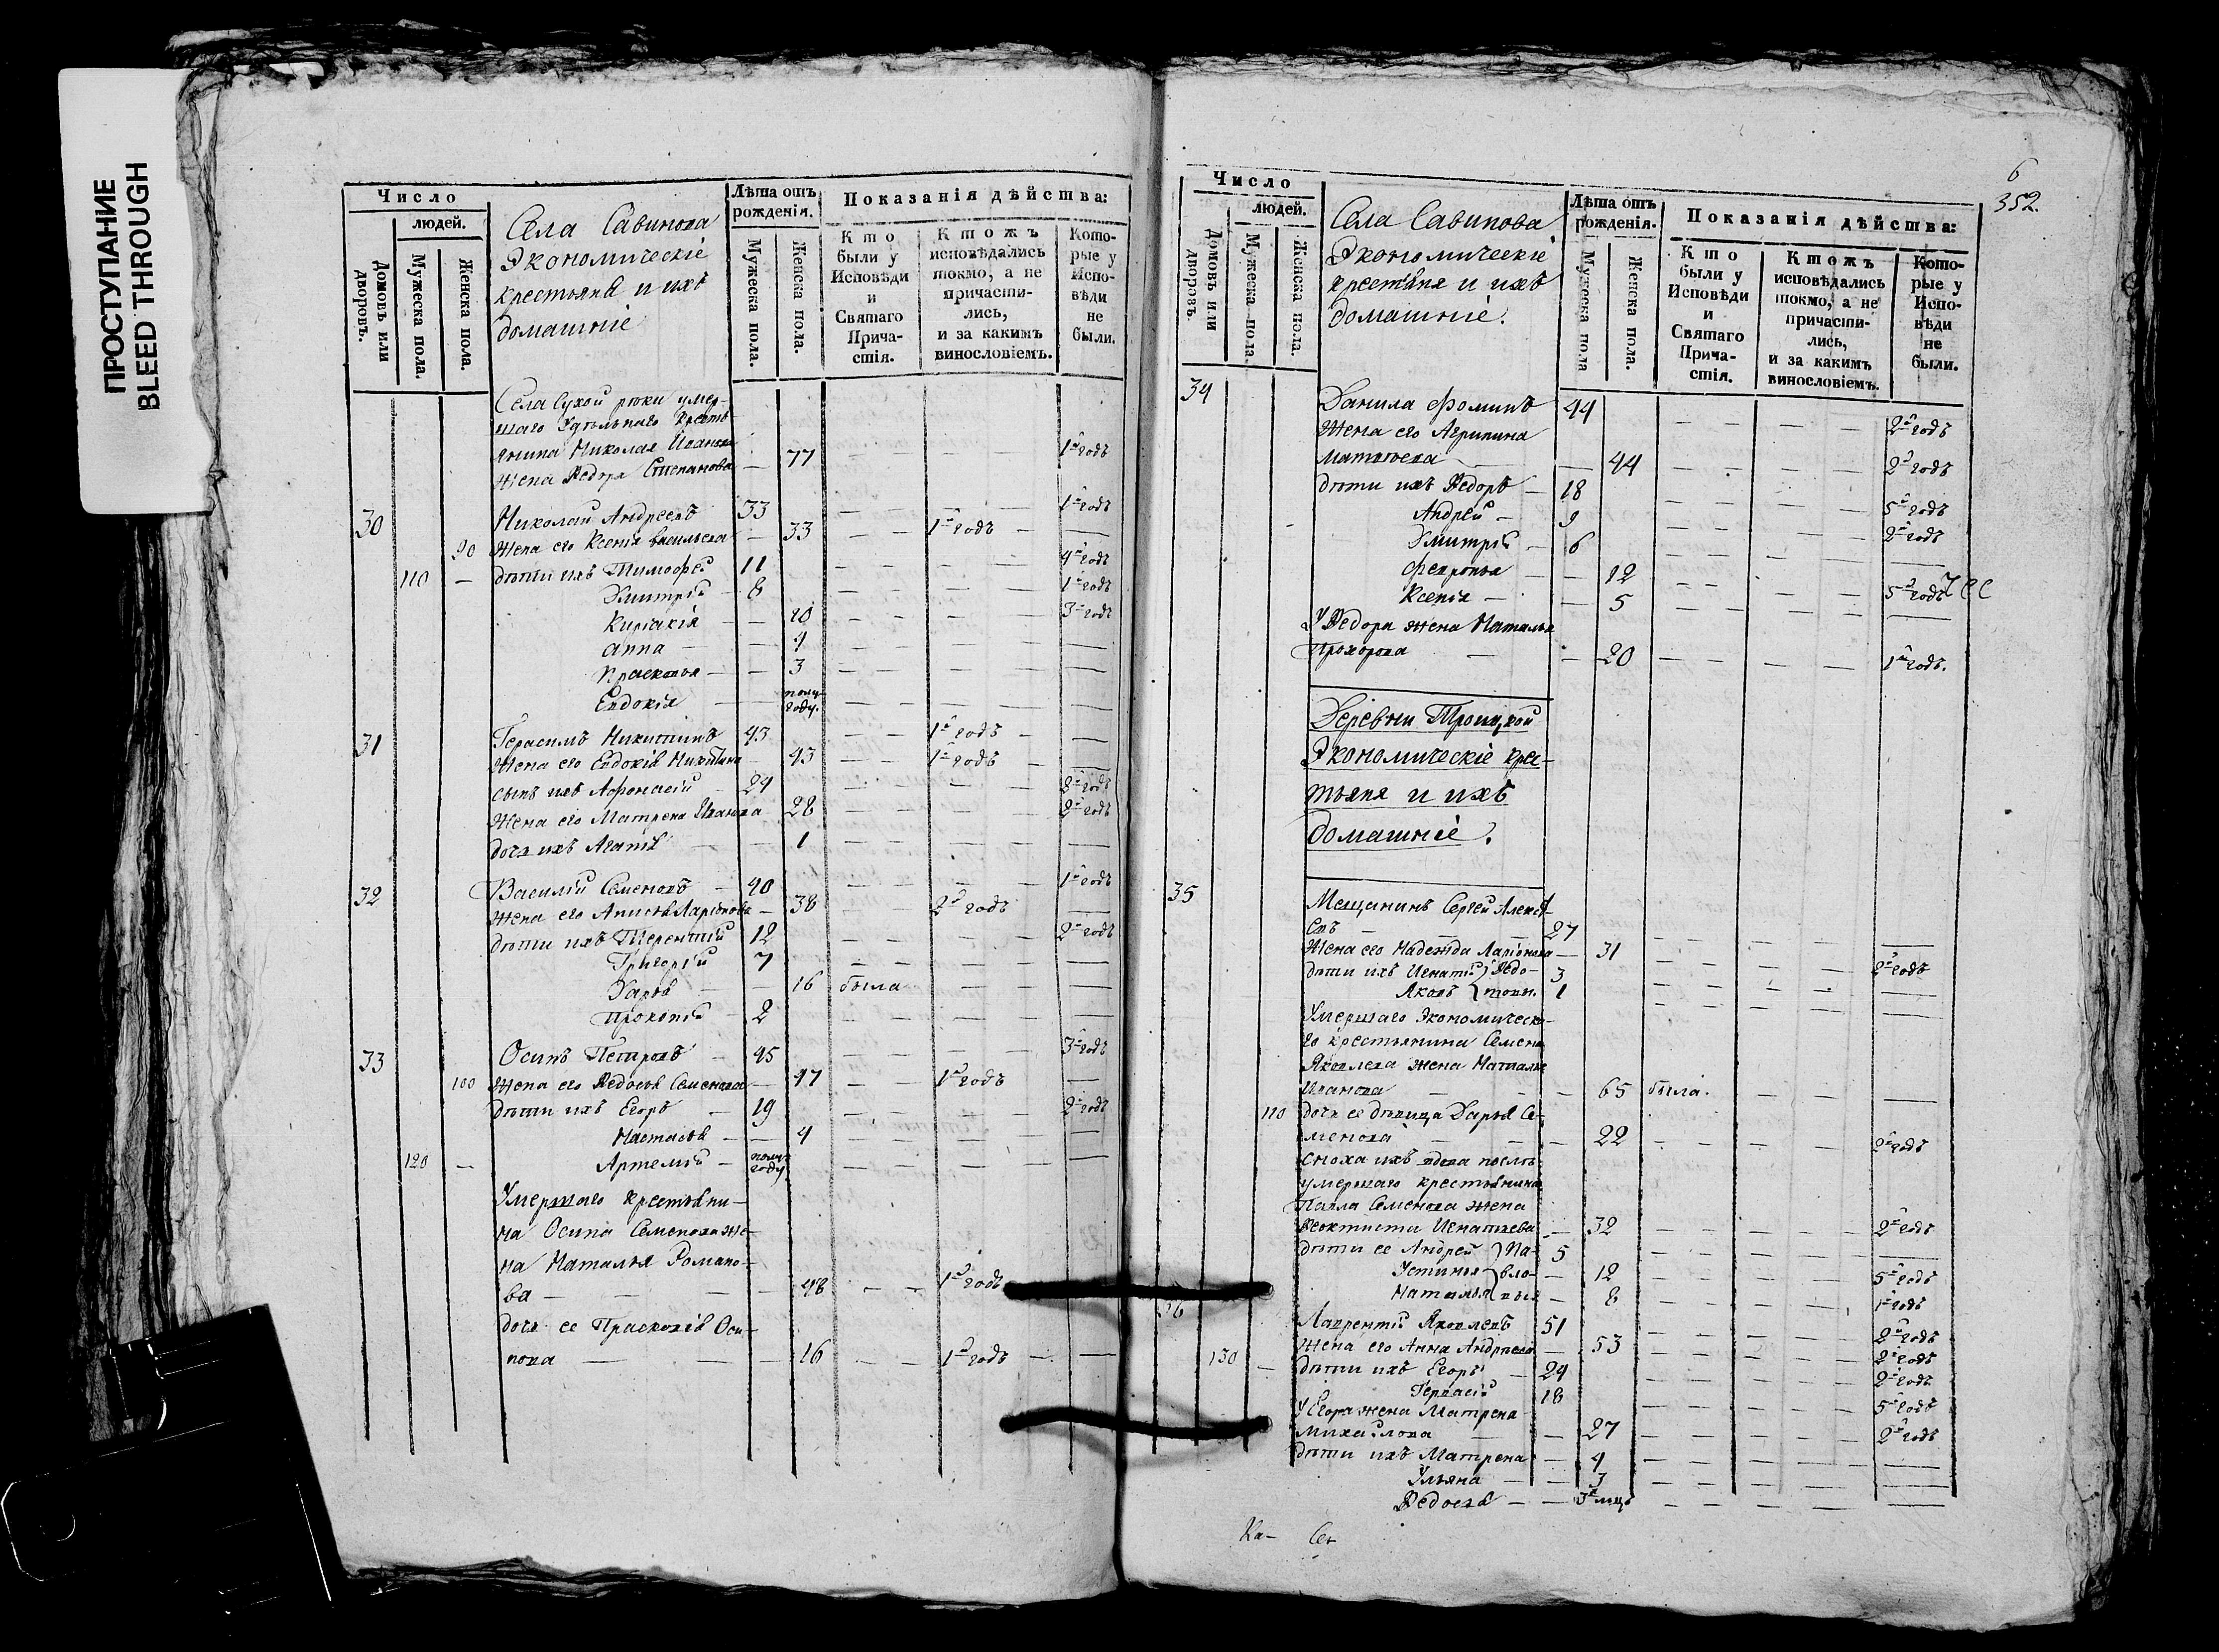 ПРОСТУПАНИЕ
BLEED THROUGH
Число
людей.
Домовъ или дворовъ.
Мужеска пола.
Женска пола.
Села Савинова
Экономическіе
крестьяне и ихъ
домашніе
Лѣта отъ рожденія.
Мужеска пола.
Женска пола.
Показанія дѣйства:
Кто были у Исповѣди и Святаго Прича-стія.
Ктожъ исповѣдались токмо, а не причасти-лись, и за какимъ винословіемъ.
Кото-рые у Испо-вѣди не были.
Села Сухой рѣки умер-
шаго Удѣльнаго крестья
янина Николая Иванова
жена Ѳедора Степанова — 77 — — — — 1й годъ
30 Николай Андреевъ 33 — — — — 1й годъ
90 Жена его Ксенія Васильева — 33 — — 1й годъ — —
110 — дѣти ихъ Тимофей 11 — — — — 4й годъ
Дмитрій — 8 — — — — 1й годъ
Киріакія — — 10 — — — — 3й годъ
Анна — — 4 — — — — —
Прасковья — — 3 — — — — —
Евдокія — — полу году. — — — — —
31 Герасимъ Никитинъ 43 — — 1й годъ — —
Жена его Евдокія Никитина — 43 — — 1й годъ — —
сынъ ихъ Афонасій — 24 — — — — 2й годъ
Жена его Матрена Иванова 28 — — — — 2й годъ
дочь ихъ Агапія — — 1 — — — — —
32 Василій Семеновъ — 40 — — — — 1й годъ
Жена его Анисья Ларіонова — 38 — — 2й годъ —
дѣти ихъ Терентій 12 — — — — 2й годъ
Григорій 7 — — — — —
Дарья — — 16 была — — —
Прокопій — 2 — — — — —
33 Осипъ Петровъ — 45 — — — — 3й годъ
100 Жена его Ѳедосья Семенова — 47 — — 1й годъ —
дѣти ихъ Егоръ — 19 — — — — 2й годъ
Настасья — — 4 — — — — —
120 — Артемій — полу году — — — — —
Умершаго крестьяни-
на Осипа Семенова же-
на Наталья Романо-
ва — — — — 48 — — 1й годъ
дочь ее Прасковія Оси-
пова — — — 16 — — 1й годъ — —
6
352.
Число
людей.
Домовъ или дворовъ.
Мужеска пола.
Женска пола.
Села Савинова
Экономическіе
крестьяня и ихъ
домашніе.
Лѣта отъ рожденія.
Мужеска пола
Женска пола.
Показанія дѣйства:
Кто были у Исповѣди и Святаго Прича-стія.
Ктожъ исповѣдались токмо, а не причасти-лись, и за какимъ винословіемъ.
Кото-рые у Испо-вѣди не были.
34 Данила Фоминъ 44 — — — — 2й годъ
Жена его Агрипина
Матвѣева — — 44 — — — — 2й годъ
дѣти ихъ Ѳедоръ — 18 — — — — 5й годъ
Андрей — 9 — — — — 2й годъ
Дмитрій — 6 — — — — —
Февронья — — 12 — — — — 5й годъ
Ксенія — — 5 — — — — —
У Ѳедора жена Наталья
Прохорова — — 20 — — — — 1й годъ.
Деревни Троицкой
Экономическіе крес-
тьяня и ихъ
домашніе.
35 Мещанинъ Сергей Алексѣ-
евъ — — — 27 — — — — —
Жена его Надежда Ларіонова — 31 — — — — 2й годъ
дѣти ихъ Игнатій } Ѳедо- 3 — — — — —
Яковъ } товы. 1 — — — — —
Умершаго Экономическо-
го крестьянина Семена
Яковлева жена Наталья
Иванова — — — 65 была. — — —
110 дочь ее дѣвица Дарья Се-
менова — — — 22 — — — — 2й годъ
сноха ихъ вдова послѣ
умершаго крестьянина
Павла Семенова жена
Ѳеоктиста Игнатьева — 32 — — — — 2й годъ
дѣти ее Андрей } Па- 5 — — — — —
Устинья } вло- — 12 — — — — 5й годъ
Наталья } вы — 8 — — — — 1й годъ
36 Лаврентій Яковлевъ 51 — — — — 2й годъ
Жена его Анна Андреева — 53 — — — — 2й годъ
130 — дѣти ихъ Егоръ — 24 — — — — 2й годъ
Гервасій 18 — — — — 5й годъ
У Егора жена Матрена
Михайлова — — 27 — — — — 2й годъ
дѣти ихъ Матрена — 4 — — — — —
Ульяна — — 3 — — — — —
Ѳедосья — — 3 мцъ — — — — —
Ка- Се-